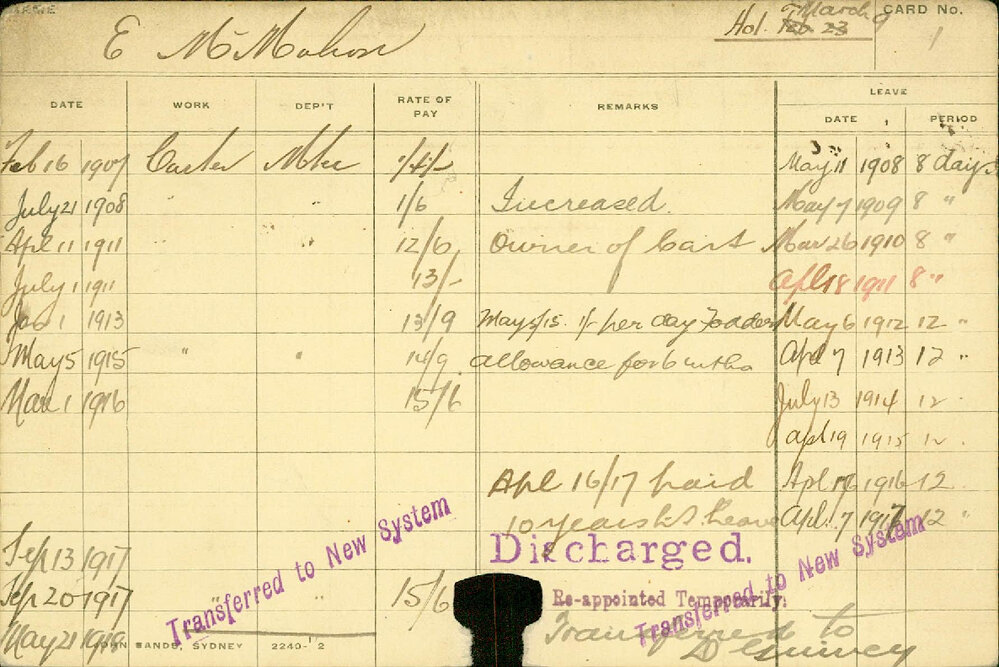 E McMahon
Hol. Feb 23 March 9
CARD No.
1
DATE WORK DEP'T RATE OF PAY REMARKS LEAVE
DATE PERIOD
Feb 16 1907 Carter 1/4/- May 11 1908 8 days
July 21 1908 " " 1/6 Increased. May 7 1909 8 "
Apl 11 1911 12/6 Owner of Cart Mar 26 1910 8 "
July 1 1911 13/- Apl 18 1911 8 "
1 1913 13/9 May 5/15. 1/- per day Fodder May 6 1912 12 "
May 5 1915 " " 14/9 allowance for 6 mths Apl 7 1913 12 "
Mar 1 1916 15/6 July 13 1914 12 "
Apl 19 1915 12 "
Apl 16/17 paid Apl 17 1916 12
10 years Leave Apl 7 1917 12 "
Sep 13 1917 Discharged.
Sep 20 1917 " " 15/6 Re-appointed Temporarily.
Transferred to New System
Transferred to New System
May 21 Transferred to
JOHN SANDS, SYDNEY 2240-'2